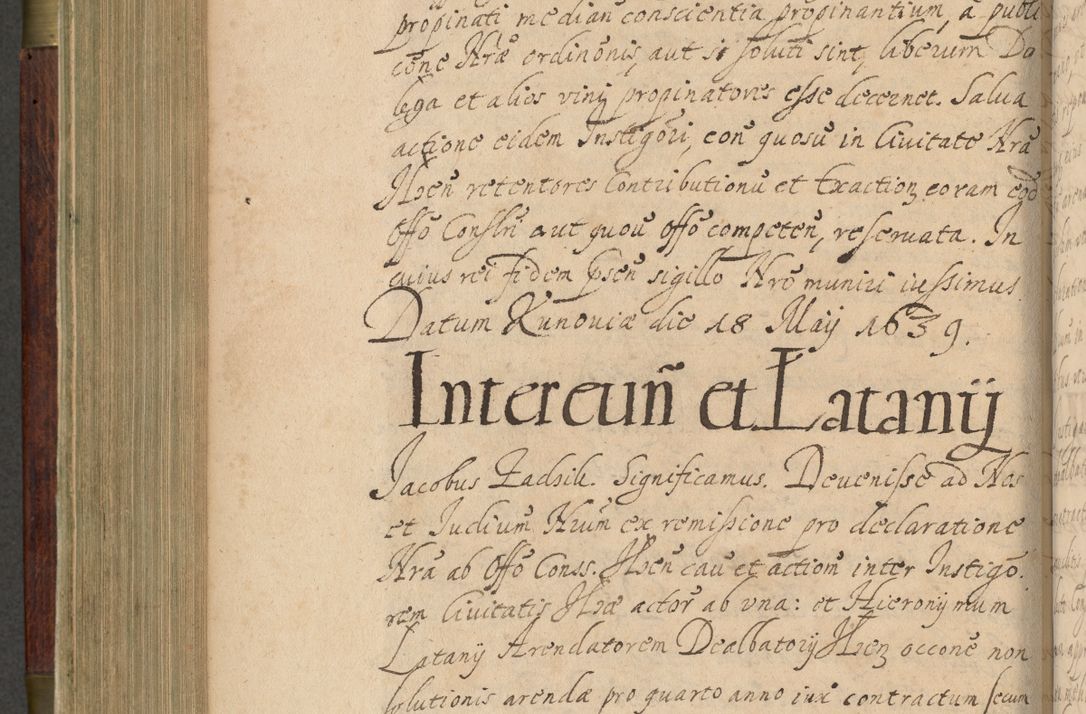 propinati median conscientia propinantium, a publi
cone Nrae ordinonis, aut si soluti sint, liberum Do
lega et alios vinj propinatores esse decernet. Salua
actione eidem Instigori, con quosu in Ciuitate Nra
retentores Contributionu et Exaction coram
Offo Conslri aut quou Offo competen, reseruata. In
cuius rei fidem psen sigillo Nro muniri iussimus.
Datum Kunouiae die 18 Maij 1639.
Intereuñ et Latanij
Jacobus Zadsik. Significamus. Deuenisse ad Nos
et Judium Nrum ex remissione pro declaratione
Nra ab Offo Conss. cau et action inter Instigo.
rem Ciuitatis actor ab vna: et Hieronymum
Latanij Arendatorem Dealbatorij occone non
solutionis arendae pro quarto anno iux contractum secum